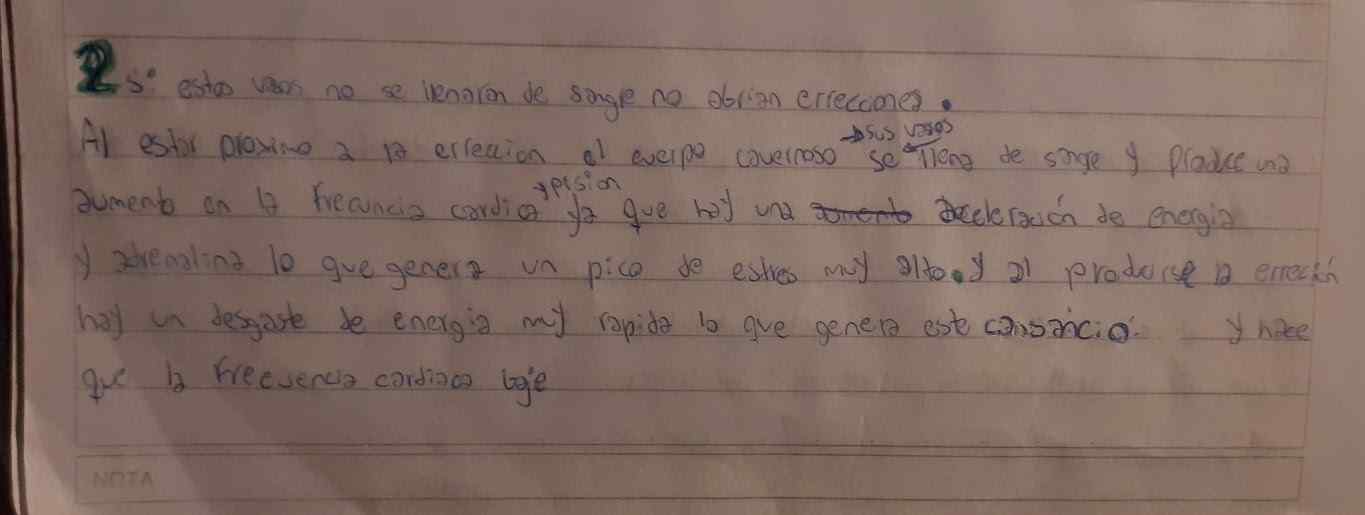 2 si estos vasos no se llenaran de sangre no abrian errecciones.
Al estar proximo a la erreccion el cuerpo cavernoso → sus vasos se llena de sangre y produce una
aumento en la frecuncia cardica y presion ya que hay una aumento aceleración de energia
y adrenalina lo que genera un pico de estres muy alto. y al producirse la errección
hay un desgaste de energia muy rapida lo que genera este cansancio. y hace
que la frecuencia cardiaca baje
NOTA